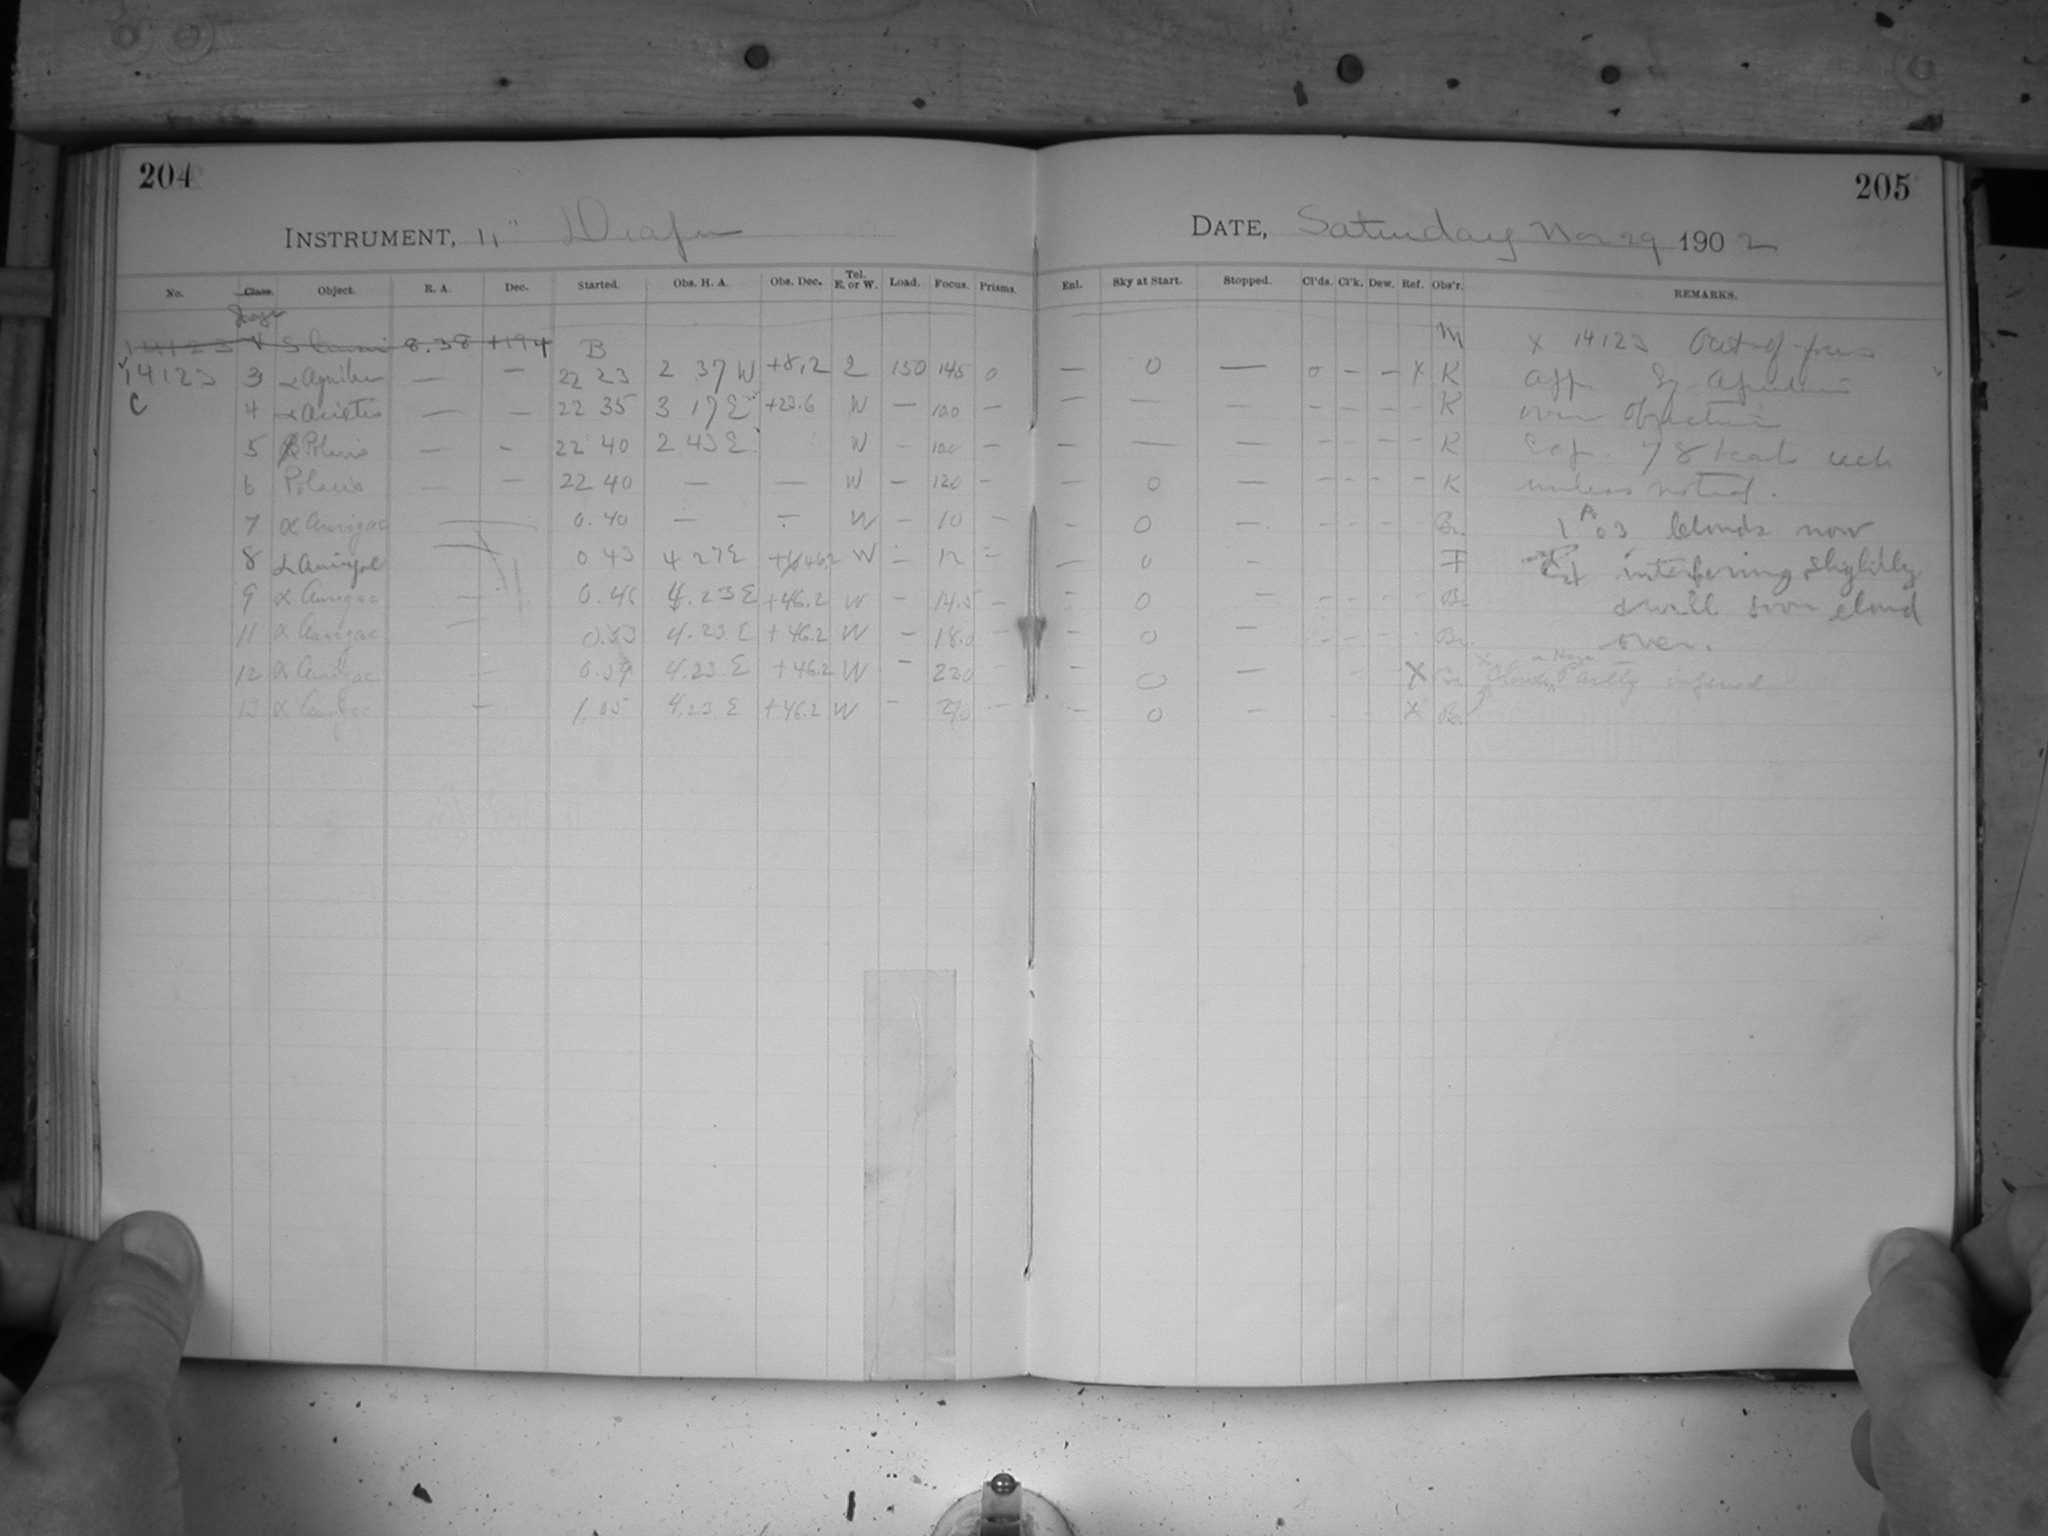 204
205
INSTRUMENT, 11" Draper
DATE, Saturday Nov 29 1902
No. Class. Object. R. A. Dec. Started. Obs. H. A. Obs. Dec. Tel. E. or W. Load. Focus. Prisms. Enl. Sky at Start. Stopped. Cl'ds. Cl'k. Dew. Ref. Obs'r. REMARKS.
14123 8.38 +19 4 B M x 14123 Out of focus
14123 3 α Aquilae — — 22 23 2 37 W +8,2 E 150 145 0 — 0 — 0 — — x K
C 4 α Arietis — — 22 35 3 17 E +22.6 W — 100 — — — — — — — K over objective
5 Polaris — - 22 40 2 43 E W - 100 — — — — - - - - K Exp. 78 beats each
6 Polaris — — 22 40 — — W — 120 — — 0 — - - - - K unless noted.
7 α Aurigae 0.40 — — W — 10 — — 0 — Br. 1 h 03 clouds now
8 α Aurigae 0 43 4 27 E W — 12 — — 0 - F interfering slightly
9 α Aurigae — 0.46 4.23 E +46.2 W — 14.5 — — 0 — - - - Br. & will soon cloud
11 α Aurigae — 0.53 4.23 E +46.2 W — 18.0 — — 0 — - - - Br. over.
12 α Aurigae — 0.59 4.23 E +46.2 W - 220 — — 0 — x Br Clouds Partly
13 α Aurigae — 1.05 4.23 E +46.2 W - — — 0 — x Br